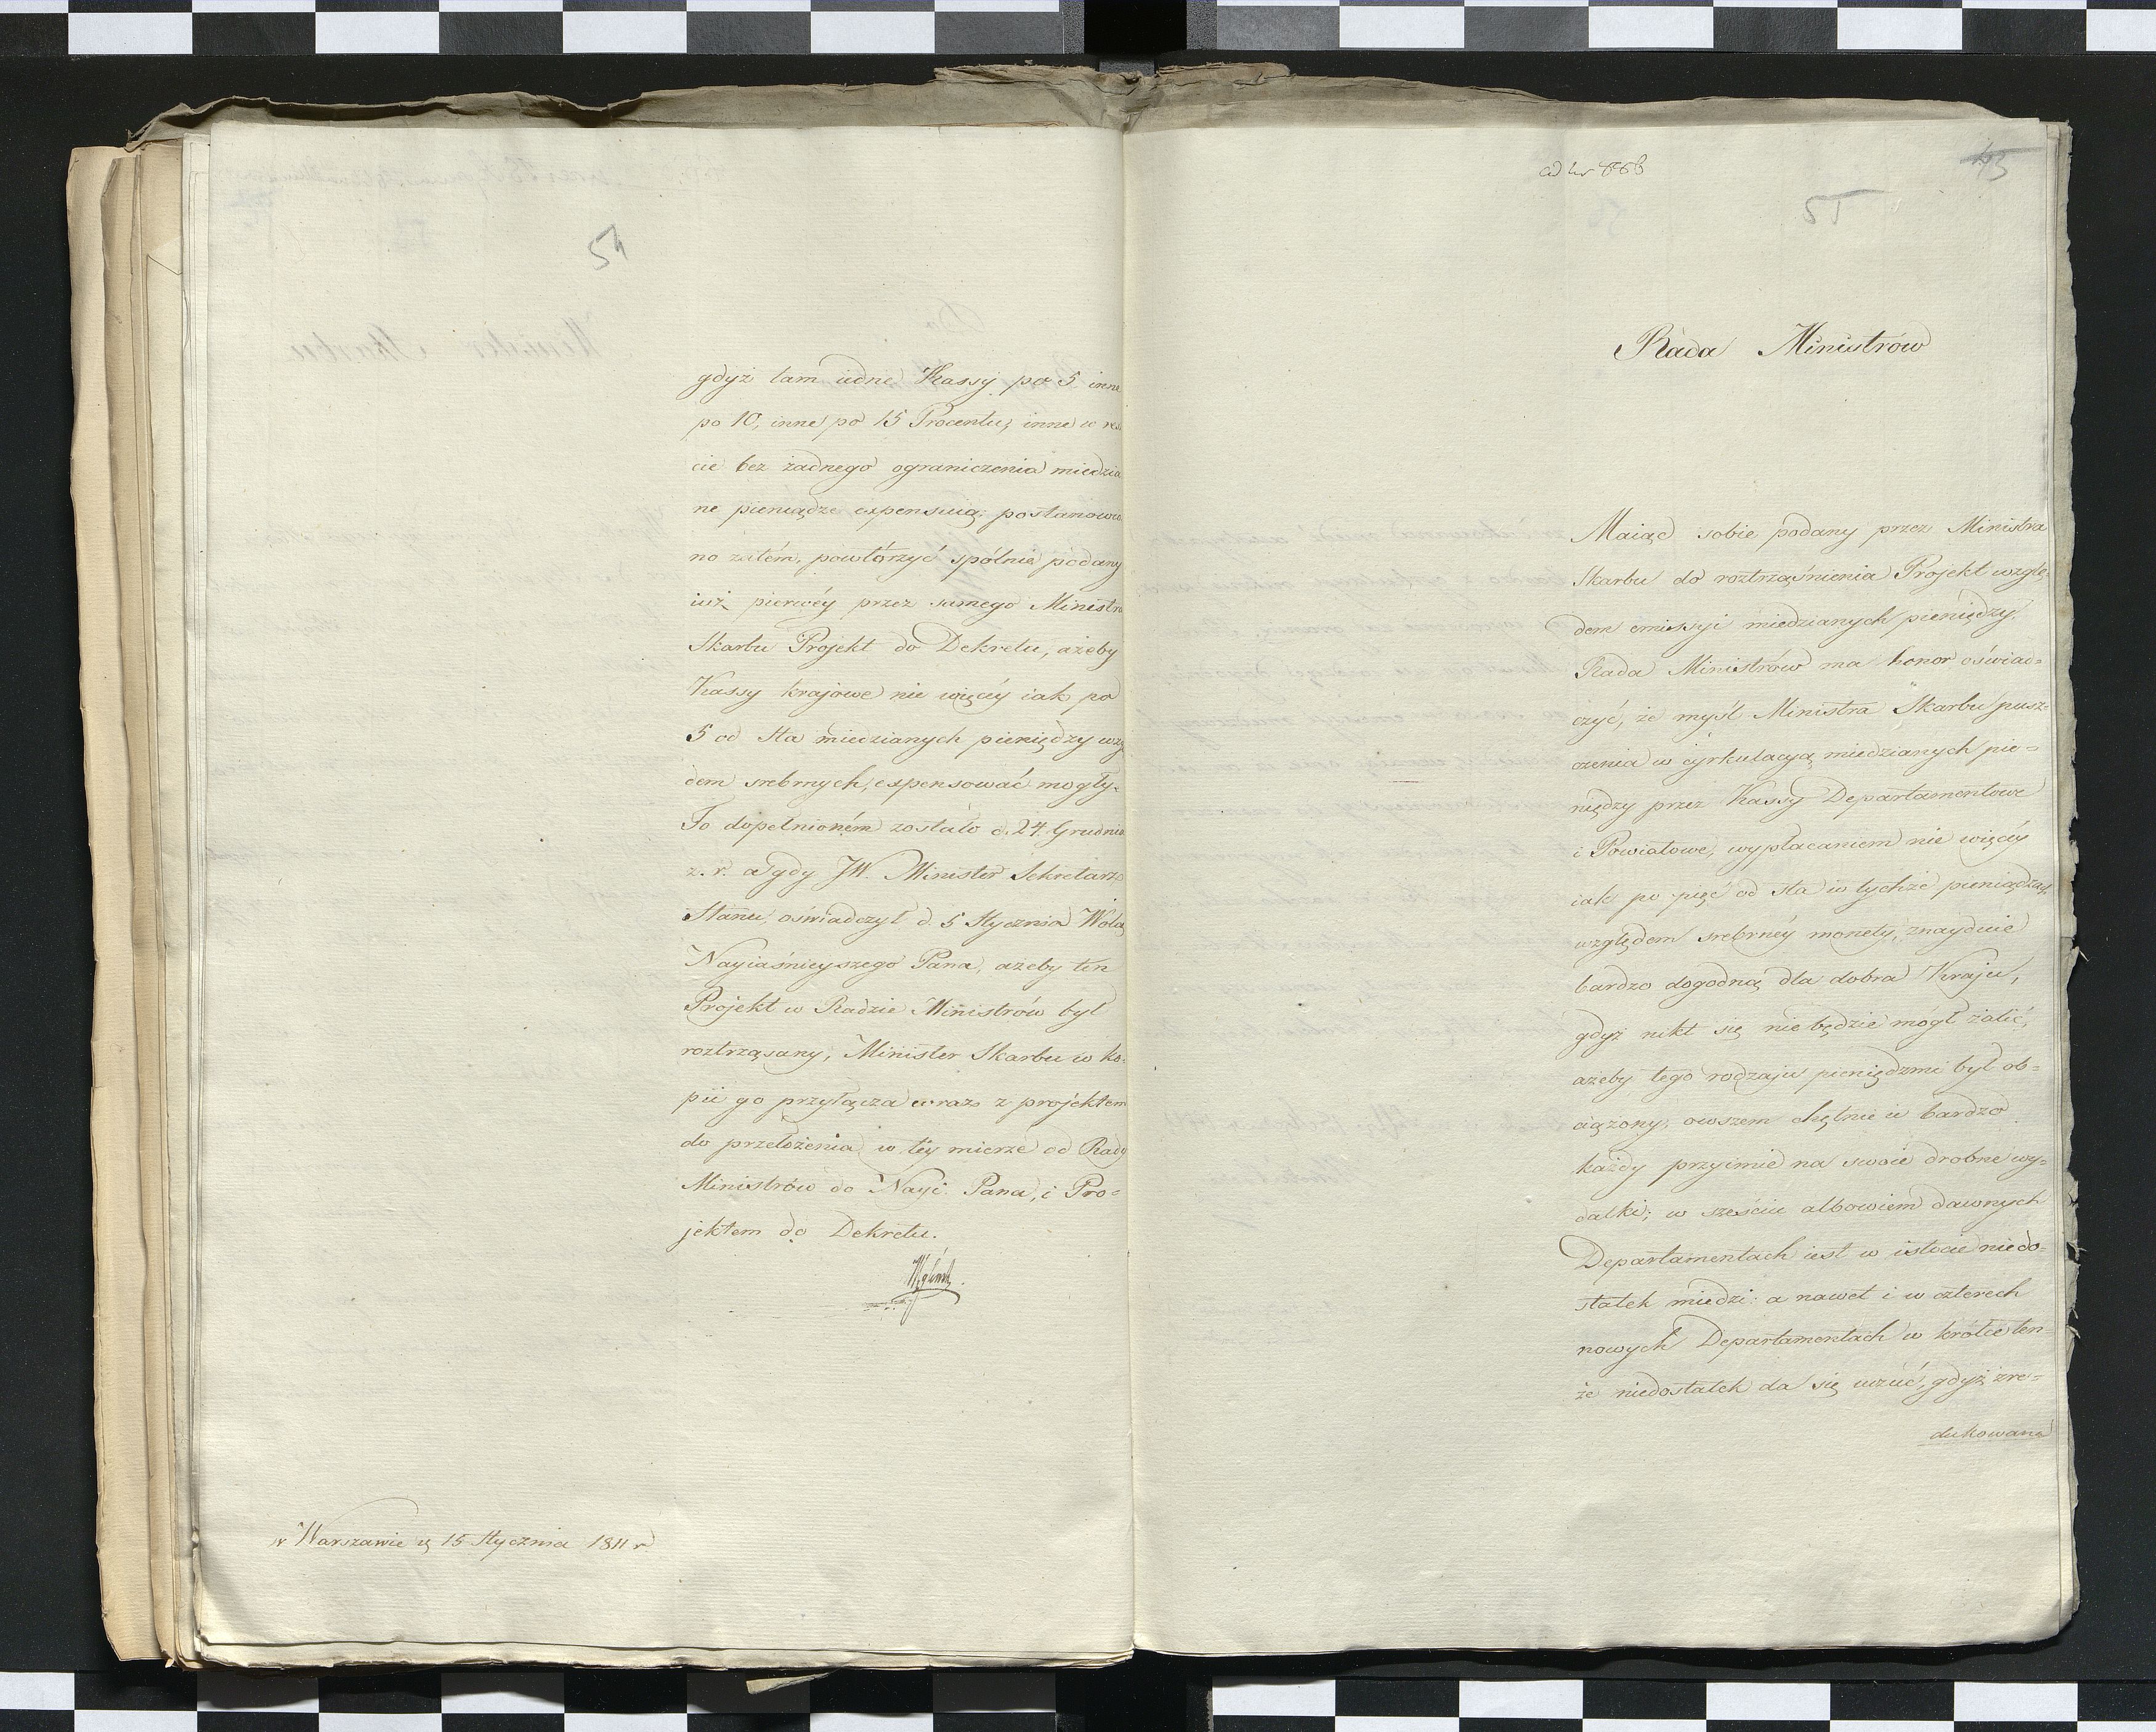 54
gdyż tam iedne Kassy po 5 inne
po 10, inne po 15 Procentu, inne w res
cie bez żadnego ograniczenia miedzia
ne pieniądze expensuią; postanowio
no zatém, powtórzyć spólnie podany
iuż pierwéy przez samego Ministra
Skarbu Projekt do Dekretu, ażeby
Kassy krajowe nie więcéy iak po
5 od sta miedzianych pieniędzy wzg
dem srebrnych, expensować mogły.
To dopełnioném zostało d. 24. Grudnia
z. r. a gdy JW. Minister Sekretarz
Stanu, oświadczył d. 5 Stycznia Wolą
Nayiaśnieyszego Pana, ażeby ten
Projekt w Radzie Ministrów był
roztrząsany, Minister Skarbu w ko-
pii go przyłącza wraz z projektem
do przełożenia w tey mierze od Rady
Ministrów do Nayi. Pana, i Pro-
jektem do Dekretu.
w Warszawie d 15 Stycznia 1811 r.
43
55
Rada Ministrów
Maiąc sobie podany przez Ministra
Skarbu do roztrząśnienia Projekt wzglę
dem emissyi miedzianych pieniędzy.
Rada Ministrów ma honor oświad-
czyć, że myśl Ministra Skarbu pusz-
czenia w cyrkulacyą miedzianych pie-
niędzy przez Kassy Departamentowe
i Powiatowe, wypłacaniem nie więcéy
iak po pięć od sta w tychże pieniądzach,
względem srebrnéy monety, znayduie
bardzo dogodną dla dobra Kraju,
gdyż nikt się nie będzie mógł żalić,
ażeby tego rodzaju pieniędzmi był ob-
ciążony, owszem chętnie ie bardzo
każdy przyimie na swoie drobne wy-
datki; w sześciu albowiem dawnych
Departamentach iest w istocie niedo-
statek miedzi: a nawet i w czterech
nowych Departamentach w krótce ten-
że niedostatek da się uczuć, gdyż zre-
dukowana